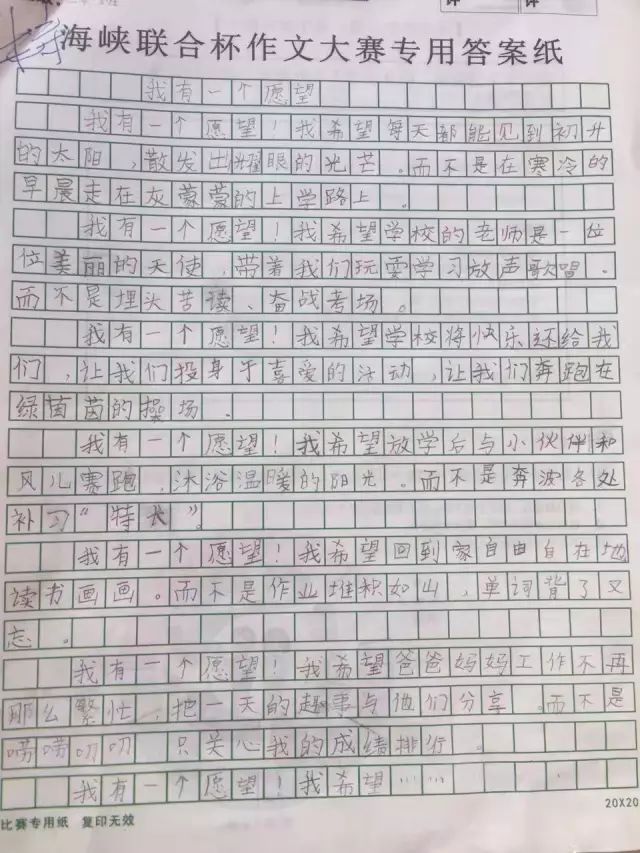 海峡联合杯作文大赛专用答案纸
我有一个愿望
我有一个愿望！我希望每天都能见到初升
的太阳，散发出耀眼的光芒。而不是在寒冷的
早晨走在灰蒙蒙的上学路上。
我有一个愿望！我希望学校的老师是一位
位美丽的天使，带着我们玩耍学习放声歌唱。
而不是埋头苦读、奋战考场。
我有一个愿望！我希望学校将快乐还给我
们，让我们投身于喜爱的活动，让我们奔跑在
绿茵茵的操场。
我有一个愿望！我希望放学后与小伙伴和
风儿赛跑，沐浴温暖的阳光。而不是奔波各处
补习“特长”。
我有一个愿望！我希望回到家自由自在地
读书画画。而不是作业堆积如山，单词背了又
忘。
我有一个愿望！我希望爸爸妈妈工作不再
那么繁忙，把一天的趣事与他们分享。而不是
唠唠叨叨　只关心我的成绩排行。
我有一个愿望！我希望……
20X20
比赛专用纸　复印无效